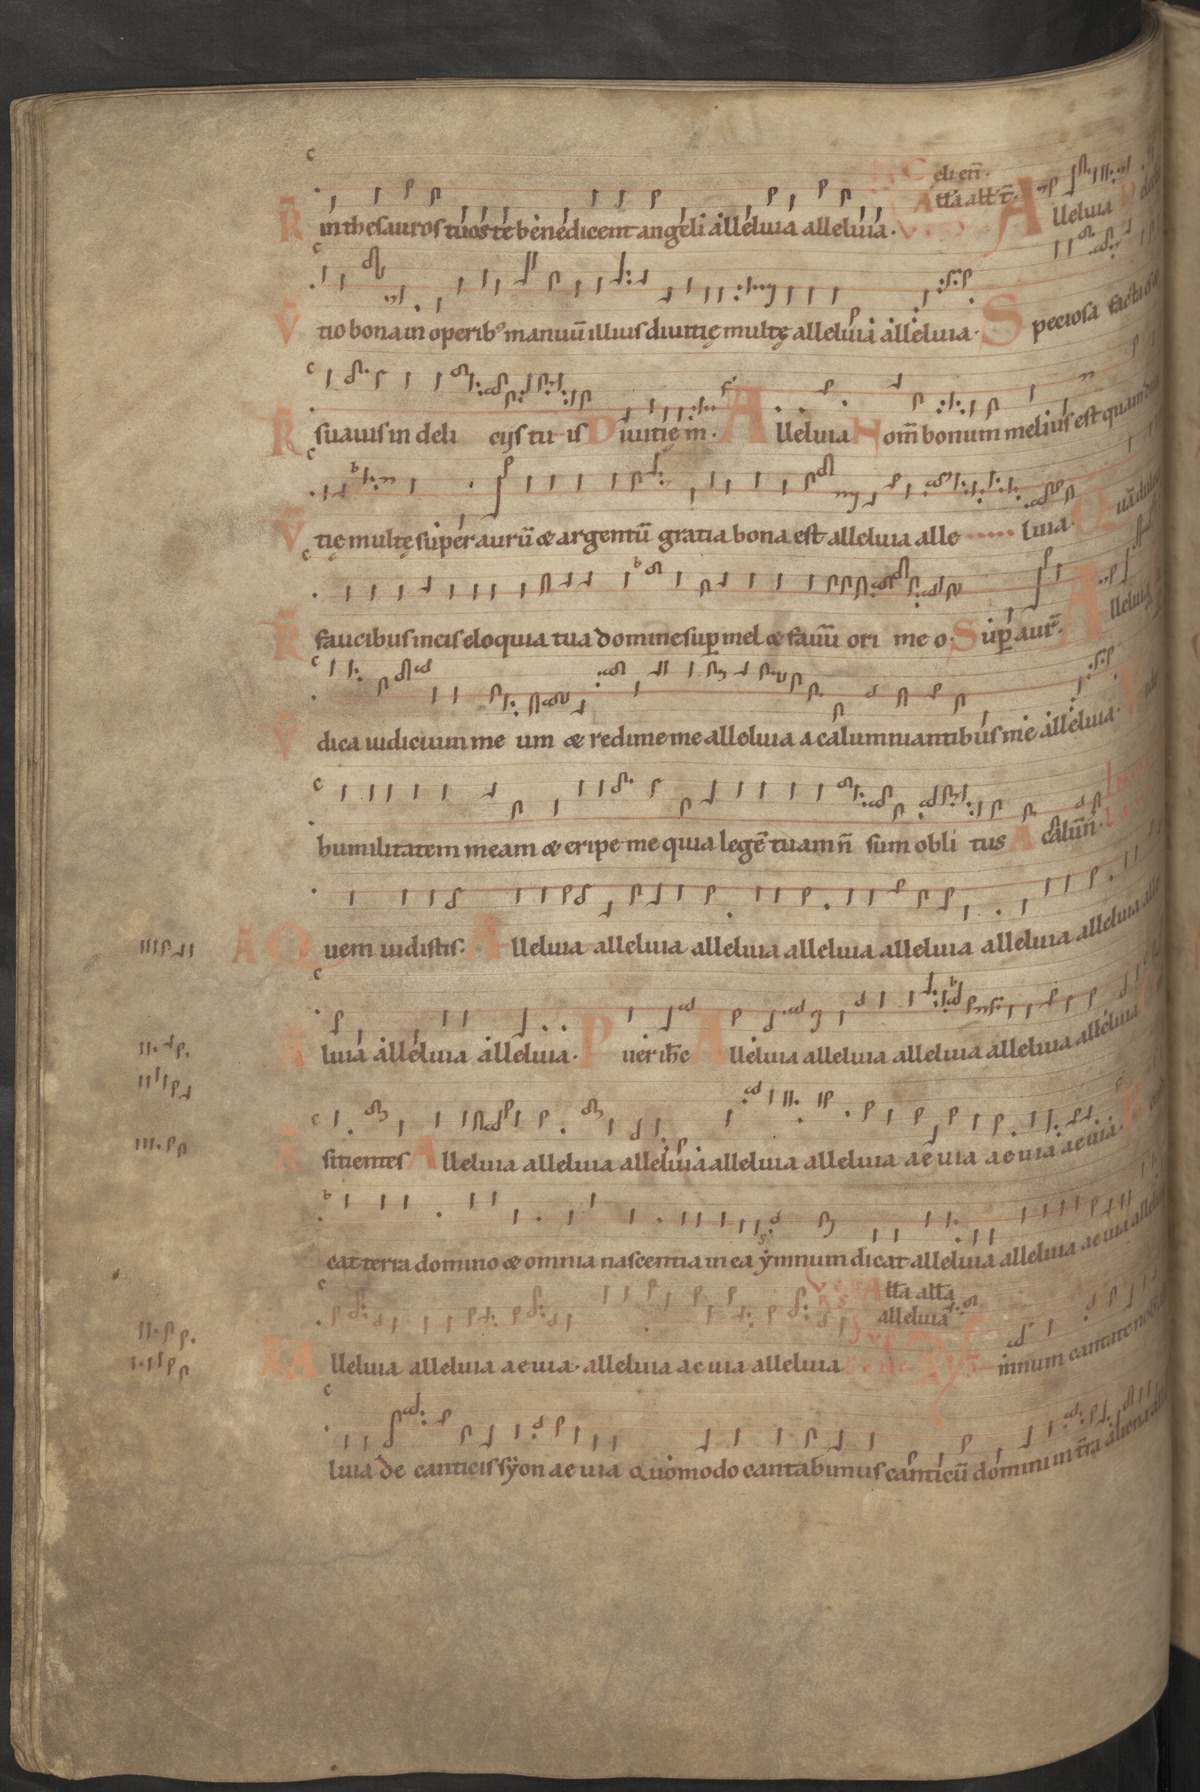 eli eñ.
R̄ in thesauros tuos te benedicent angeli alleluia alleluia. All̄a all̄ t̄. Alleluia
V̄ tio bona in operib; manuū illius diuitię multę alleluia alleluia. Speciosa facta es
R̄ suauis in deli cijs tu is Diuitię in. Alleluia Nom̄ bonum melius est quam
V̄ tię multę super aurū & argentū gratia bona est alleluia alle luia. Quā dulcia
R̄ faucibus meis eloquia tua domine sup mel & fauū ori meo. Sup aur̄. Alleluia
V̄ dica iudicium me um & redime me alleluia a calumniantibus me alleluia.
humilitatem meam & eripe me quia legē tuam n̄ sum obli tus A calūn̄.
A Quem uidistis. Alleluia alleluia alleluia alleluia alleluia alleluia alleluia alle
A luia alleluia alleluia. Pueri h̄e Alleluia alleluia alleluia alleluia alleluia
A sitientes Alleluia alleluia alleluia alleluia alleluia aeuia aeuia aeuia. Be
cat terra domino & omnia nascentia in ea ẏmnum dicat alleluia alleluia aeuia alleluia
All̄a all̄a
alleluia
Ā Alleluia alleluia aeuia. alleluia aeuia alleluia imnum cantate nobis
luia de canticis sẏon aeuia Quomodo cantabimus canticū domini in t̄ra aliena